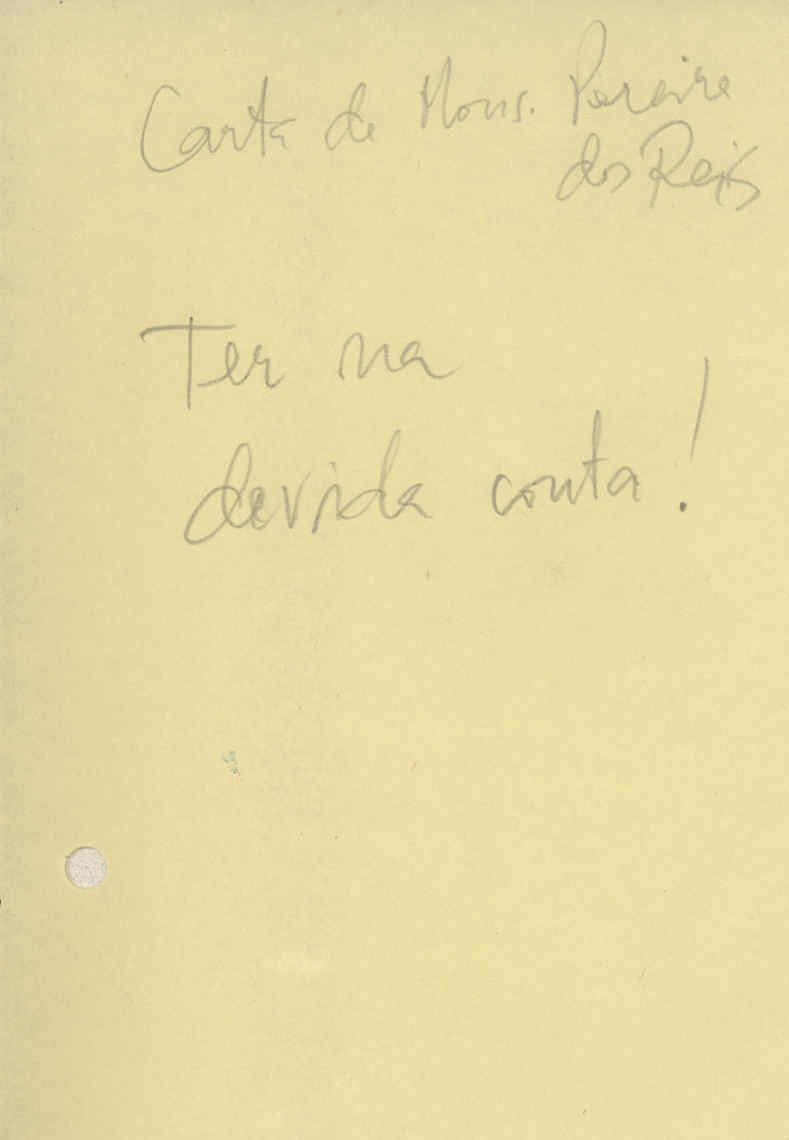 Carta de Mons. Pereira
dos Reis
Ter na
devida conta!